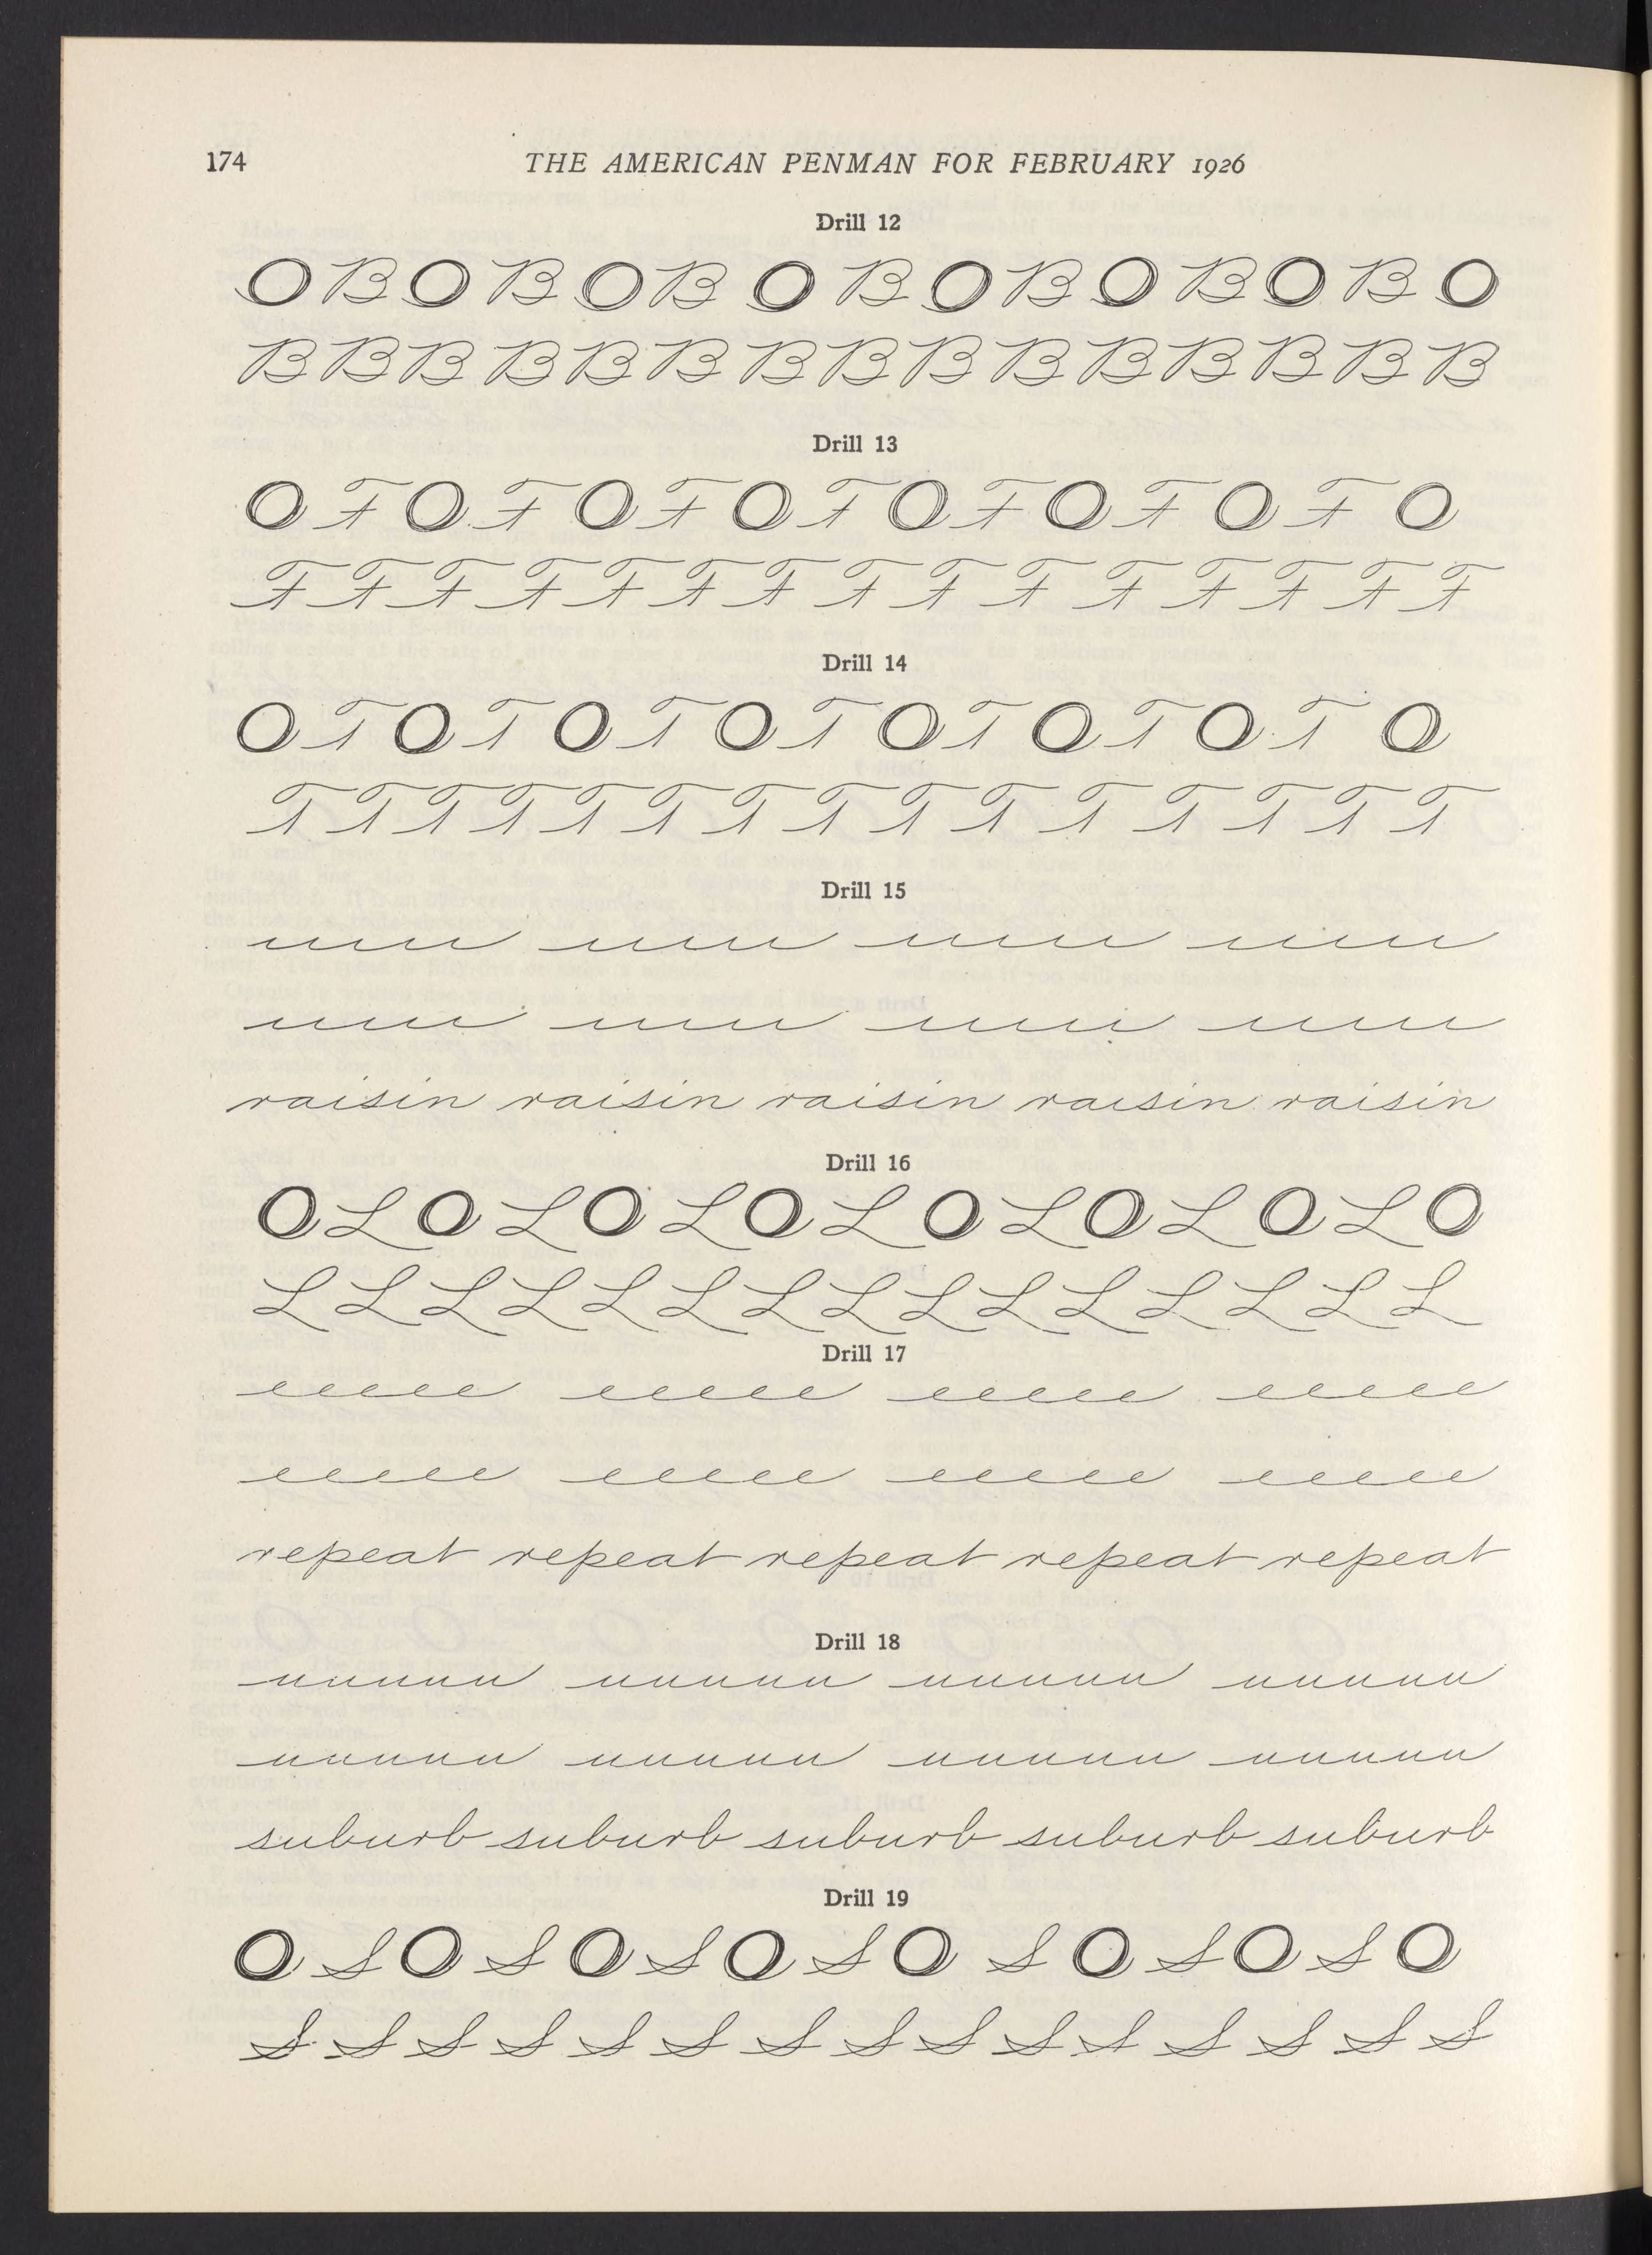 174 THE AMERICAN PENMAN FOR FEBRUARY 1926
Drill 12
O B O B O B O B O B O B O B O
B B B B B B B B B B B B B B B
Drill 13
O F O F O F O F O F O F O F O
F F F F F F F F F F F F F F F
Drill 14
O T O T O T O T O T O T O T O
T T T T T T T T T T T T T T T
Drill 15
iiiii iiiii iiiii iiiii
iiiii iiiii iiiii iiiii
raisin raisin raisin raisin raisin
Drill 16
O L O L O L O L O L O L O L O
L L L L L L L L L L L L L L L
Drill 17
eeeee eeeee eeeee eeeee
eeeee eeeee eeeee eeeee
repeat repeat repeat repeat repeat
Drill 18
uuuuu uuuuu uuuuu uuuuu
uuuuu uuuuu uuuuu uuuuu
suburb suburb suburb suburb suburb
Drill 19
O S O S O S O S O S O S O S O
S S S S S S S S S S S S S S S